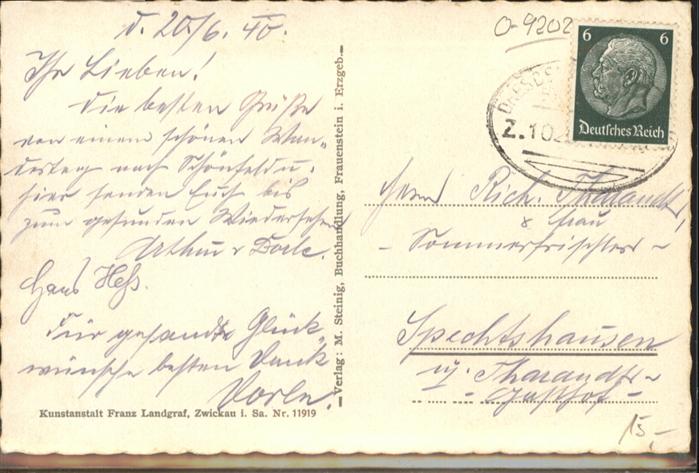 d. 20/6. 40.
Ihr Lieben!
Die besten Grüße
von einem schönen Wan-
dertag nach Schönfeld u.
hier senden Euch bis
zum gesunden Wiedersehen
Arthur u Dorle.
Hans Heß.
Für gesandte Glück-
wünsche besten Dank
Dorle.
Kunstanstalt Franz Landgraf, Zwickau i. Sa. Nr. 11919
Verlag: M. Steinig, Buchhandlung, Frauenstein i. Erzgeb.
0-9202
6 6
Deutsches Reich
DRESD
Z.102
Herrn Rich. Tharandt,
& Frau
- Sommerfrischler -
Spechtshausen
Tharandt-
- Gasthof -
15,-